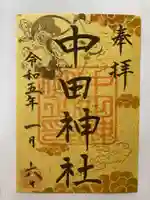 奉拝
中田神社
令和五年一月六日